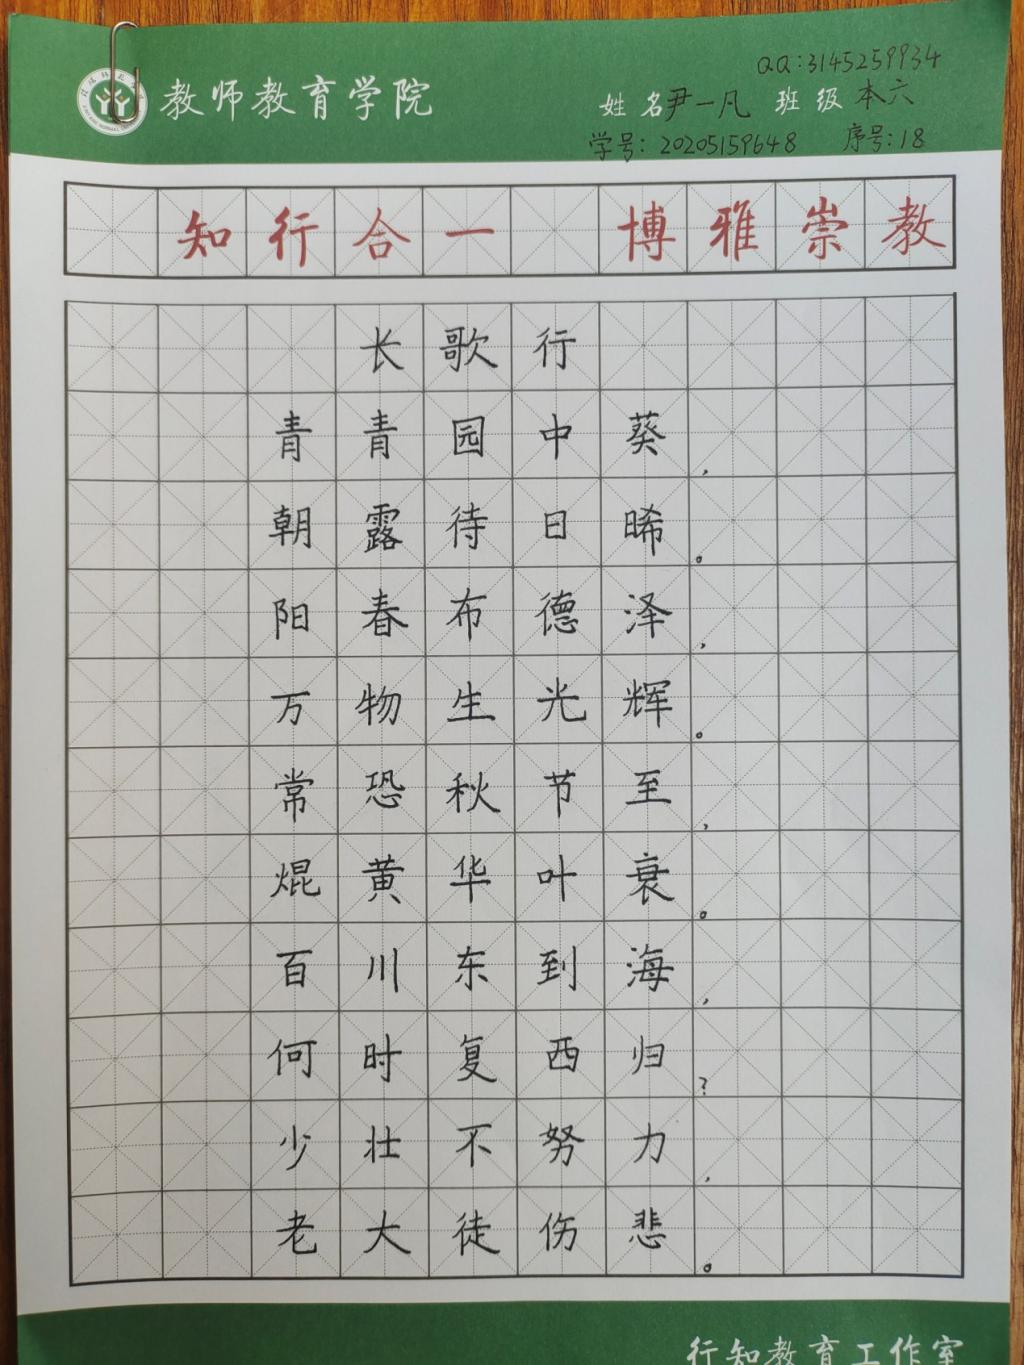 QQ:3145259934
教师教育学院
姓名尹一凡 班级本六
学号:20205159648 序号:18
知行合一 博雅崇教
长歌行
青青园中葵,
朝露待日晞。
阳春布德泽,
万物生光辉。
常恐秋节至,
焜黄华叶衰。
百川东到海,
何时复西归?
少壮不努力,
老大徒伤悲。
行知教育工作室